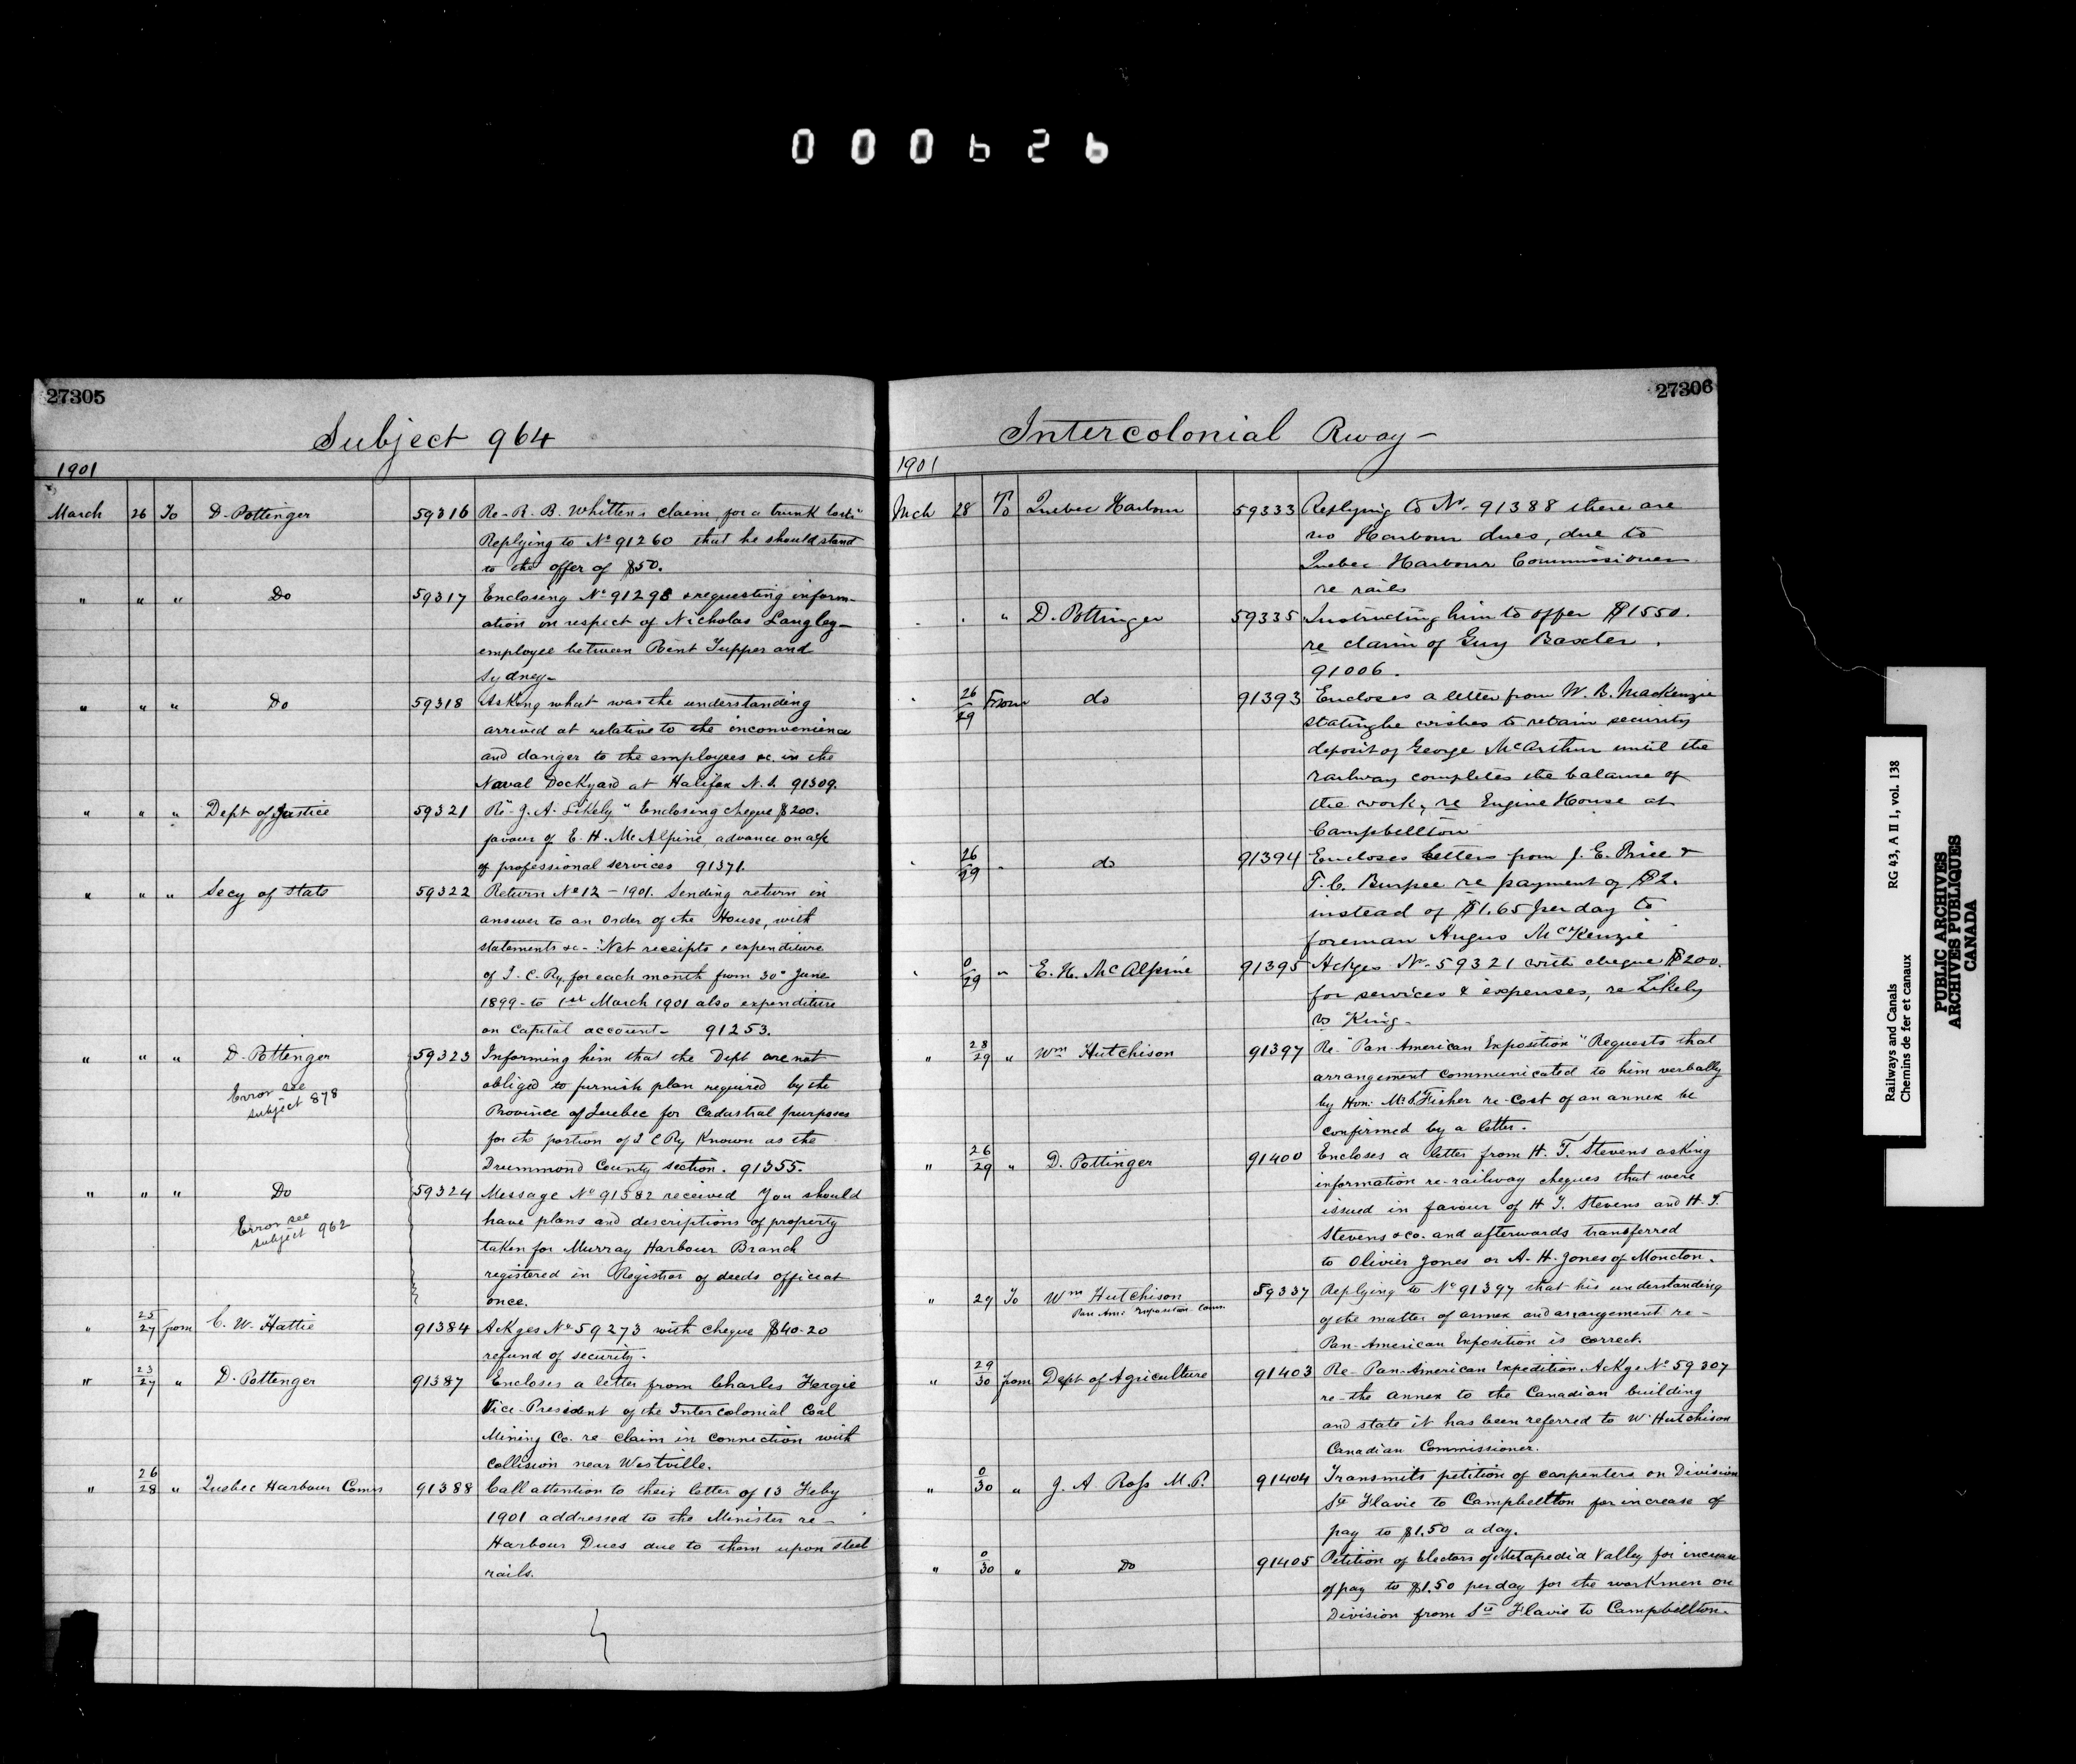 000626
27305
Subject 964
1901
March 26 To D. Pottinger 59316 Re- R. B. Whitten's claim for a trunk lost"
Replying to No 91260 that he should stand
to the offer of $50.
" " " Do 59317 Enclosing No 91298 & requesting inform-
ation in respect of Nicholas Langley-
employee between Point Tupper and
Sydney-
" " " Do 59318 Asking what was the understanding
arrived at relative to the inconvenience
and danger to the employees &c. in the
Naval Dockyard at Halifax N.S. 91309.
" " " Dept of Justice 59321 Re "J. A. Likely" Enclosing cheque $200.
favour of E. H. McAlpine, advance on a/c
of professional services 91371.
" " " Secy of State 59322 Return No 12 - 1901. Sending return in
answer to an Order of the House, with
statements &c- : Net receipts & expenditure
of I. C. Ry. for each month from 30" June
1899- to 1st March 1901 also expenditure
on Capital account- 91253.
" " " D. Pottenger 59323 Informing him that the Dept are not
obliged to furnish plan required by the
Error see
subject 878
Province of Quebec for Cadastral purposes
for the portion of I C Ry Known as the
Drummond County section. 91355.
" " " Do 59324 Message No 91382 received You should
have plans and descriptions of property
Error see
subject 962
taken for Murray Harbour Branch
registered in Registrar of deeds office at
once.
" 25/27 from C. W. Hattie 91384 Ackges No 59273 with cheque $40.20
refund of security.
" 23/27 " D. Pottenger 91387 Encloses a letter from Charles Fergie
Vice-President of the Intercolonial Coal
Mining Co. re- claim in connection with
collision near Westville.
" 26/28 " Quebec Harbour Comrs 91388 Call attention to their letter of 13 Feby
1901 addressed to the Minister re-
Harbour Dues due to them upon steel
rails.
27306
Intercolonial Rway-
1901
Mch 28 To Quebec Harbour 59333 Replying to No. 91388 there are
no Harbour dues, due to
Quebec Harbour Commissioners
re rails
" " " D. Pottinger 59335 Instructing him to offer $1550.
re claim of Guy Baxter.
91006.
" 26/29 From do 91393 Encloses a letter from W. B. MacKenzie
stating he wishes to retain security
deposit of George McArthur until the
railway completes the balance of
the work, re Engine House at
Campbellton
" 26/29 " do 91394 Encloses letters from J. E. Price &
T. C. Burpee re payment of $2.
instead of $1.65 per day to
foreman Angus McKenzie
" 0/29 " E. H. McAlpine 91395 Ackges No. 59321 with cheque $200.
for services & expenses, re Likely
vs King-
" 28/29 " Wm Hutchison 91397 Re- "Pan-American Exposition" Requests that
arrangement communicated to him verbally
by Hon: Mr S. Fisher re- cost of an annex be
confirmed by a letter.
" 26/29 " D. Pottinger 91400 Encloses a letter from H. T. Stevens asking
information re- railway cheques that were
issued in favour of H T. Stevens and H. T.
Stevens & co. and afterwards transferred
to Olivier Jones or A. H. Jones of Moncton.
" 29 To Wm Hutchison 59337 Replying to No 91397 that his understanding
Pan Ami Exposition Comr.
of the matter of annex and arrangement re-
Pan-American Exposition is correct.
" 29/30 from Dept of Agriculture 91403 Re- Pan-American Expedition. Ackge No 59307
re- the annex to the Canadian building
and state it has been referred to W. Hutchison
Canadian Commissioner.
" 0/30 " J. A Ross M.P. 91404 Transmits petition of carpenters on Division
Ste Flavie to Campbellton for increase of
pay to $1.50 a day.
" 0/30 " Do 91405 Petition of Electors of Metapedia Valley for increase
of pay to $1.50 per day for the workmen on
Division from Ste Flavie to Campbellton.
Railways and Canals RG 43, A II 1, vol. 138
Chemins de fer et canaux
PUBLIC ARCHIVES
ARCHIVES PUBLIQUES
CANADA